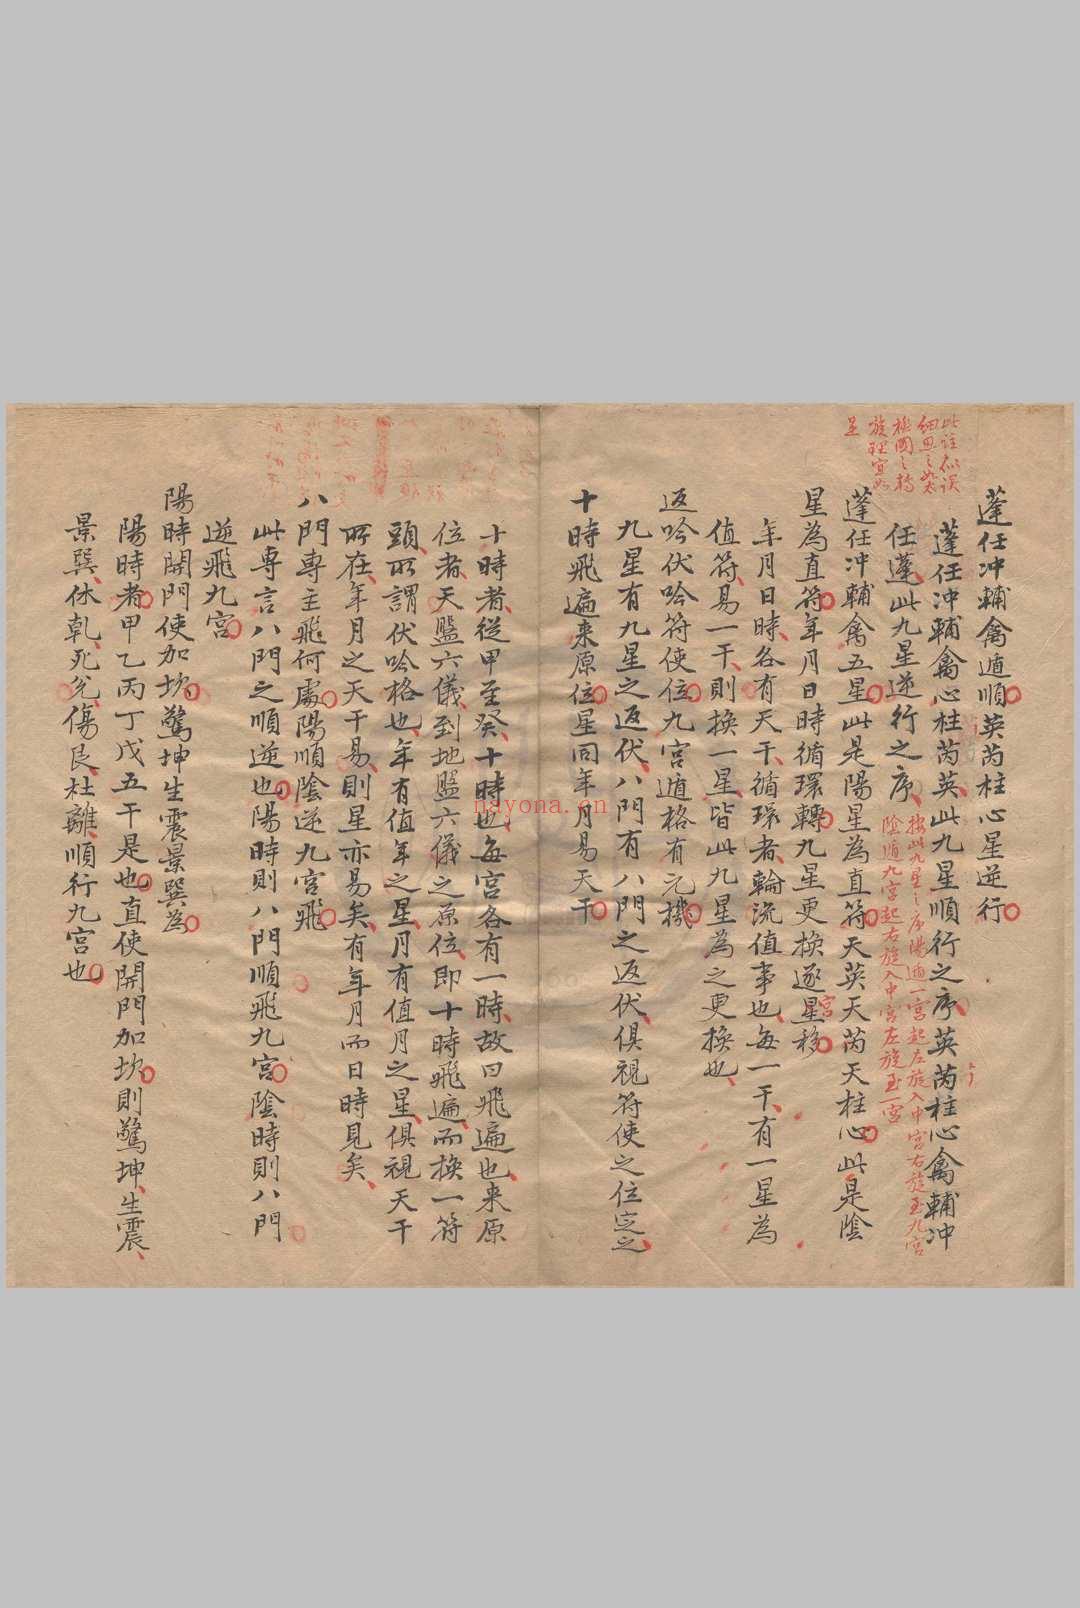 蓬任冲輔禽遁順英芮柱心星逆行
蓬任冲輔禽心柱芮英此九星順行之序英芮柱心禽輔冲
任蓬此九星逆行之序
按此九星之序陽遁一宮起左旋入中宮右旋至九宮
陰遁九宮起右旋入中宮左旋至一宮
蓬任冲輔禽五星此是陽星為直符天英天芮天柱心此是陰
星為直符年月日時循環轉九星更換逐星移
宮
年月日時各有天干循環者輪流值事也每一干有一星為
值符易一干則換一星皆此九星為之更換也
返吟伏吟符使位九宮遁格有元機
九星有九星之返伏八門有八門之返伏俱視符使之位定之
十時飛遍来原位星同年月易天干
十時者從甲至癸十時也每宮各有一時故曰飛遍也来原
位者天盤六儀到地盤六儀之原位即十時飛遍而換一符
頭所謂伏吟格也年有值年之星月有值月之星俱視天干
所在年月之天干易則星亦易矣有年月而日時見矣
八門專主飛何處陽順陰逆九宮飛
此專言八門之順逆也陽時則八門順飛九宮陰時則八門
逆飛九宮
陽時開門使加坎驚坤生震景巽為
陽時者甲乙丙丁戊五干是也直使開門加坎則驚坤生震
景巽休乹死兊傷艮杜離順行九宮也
nayona.cn